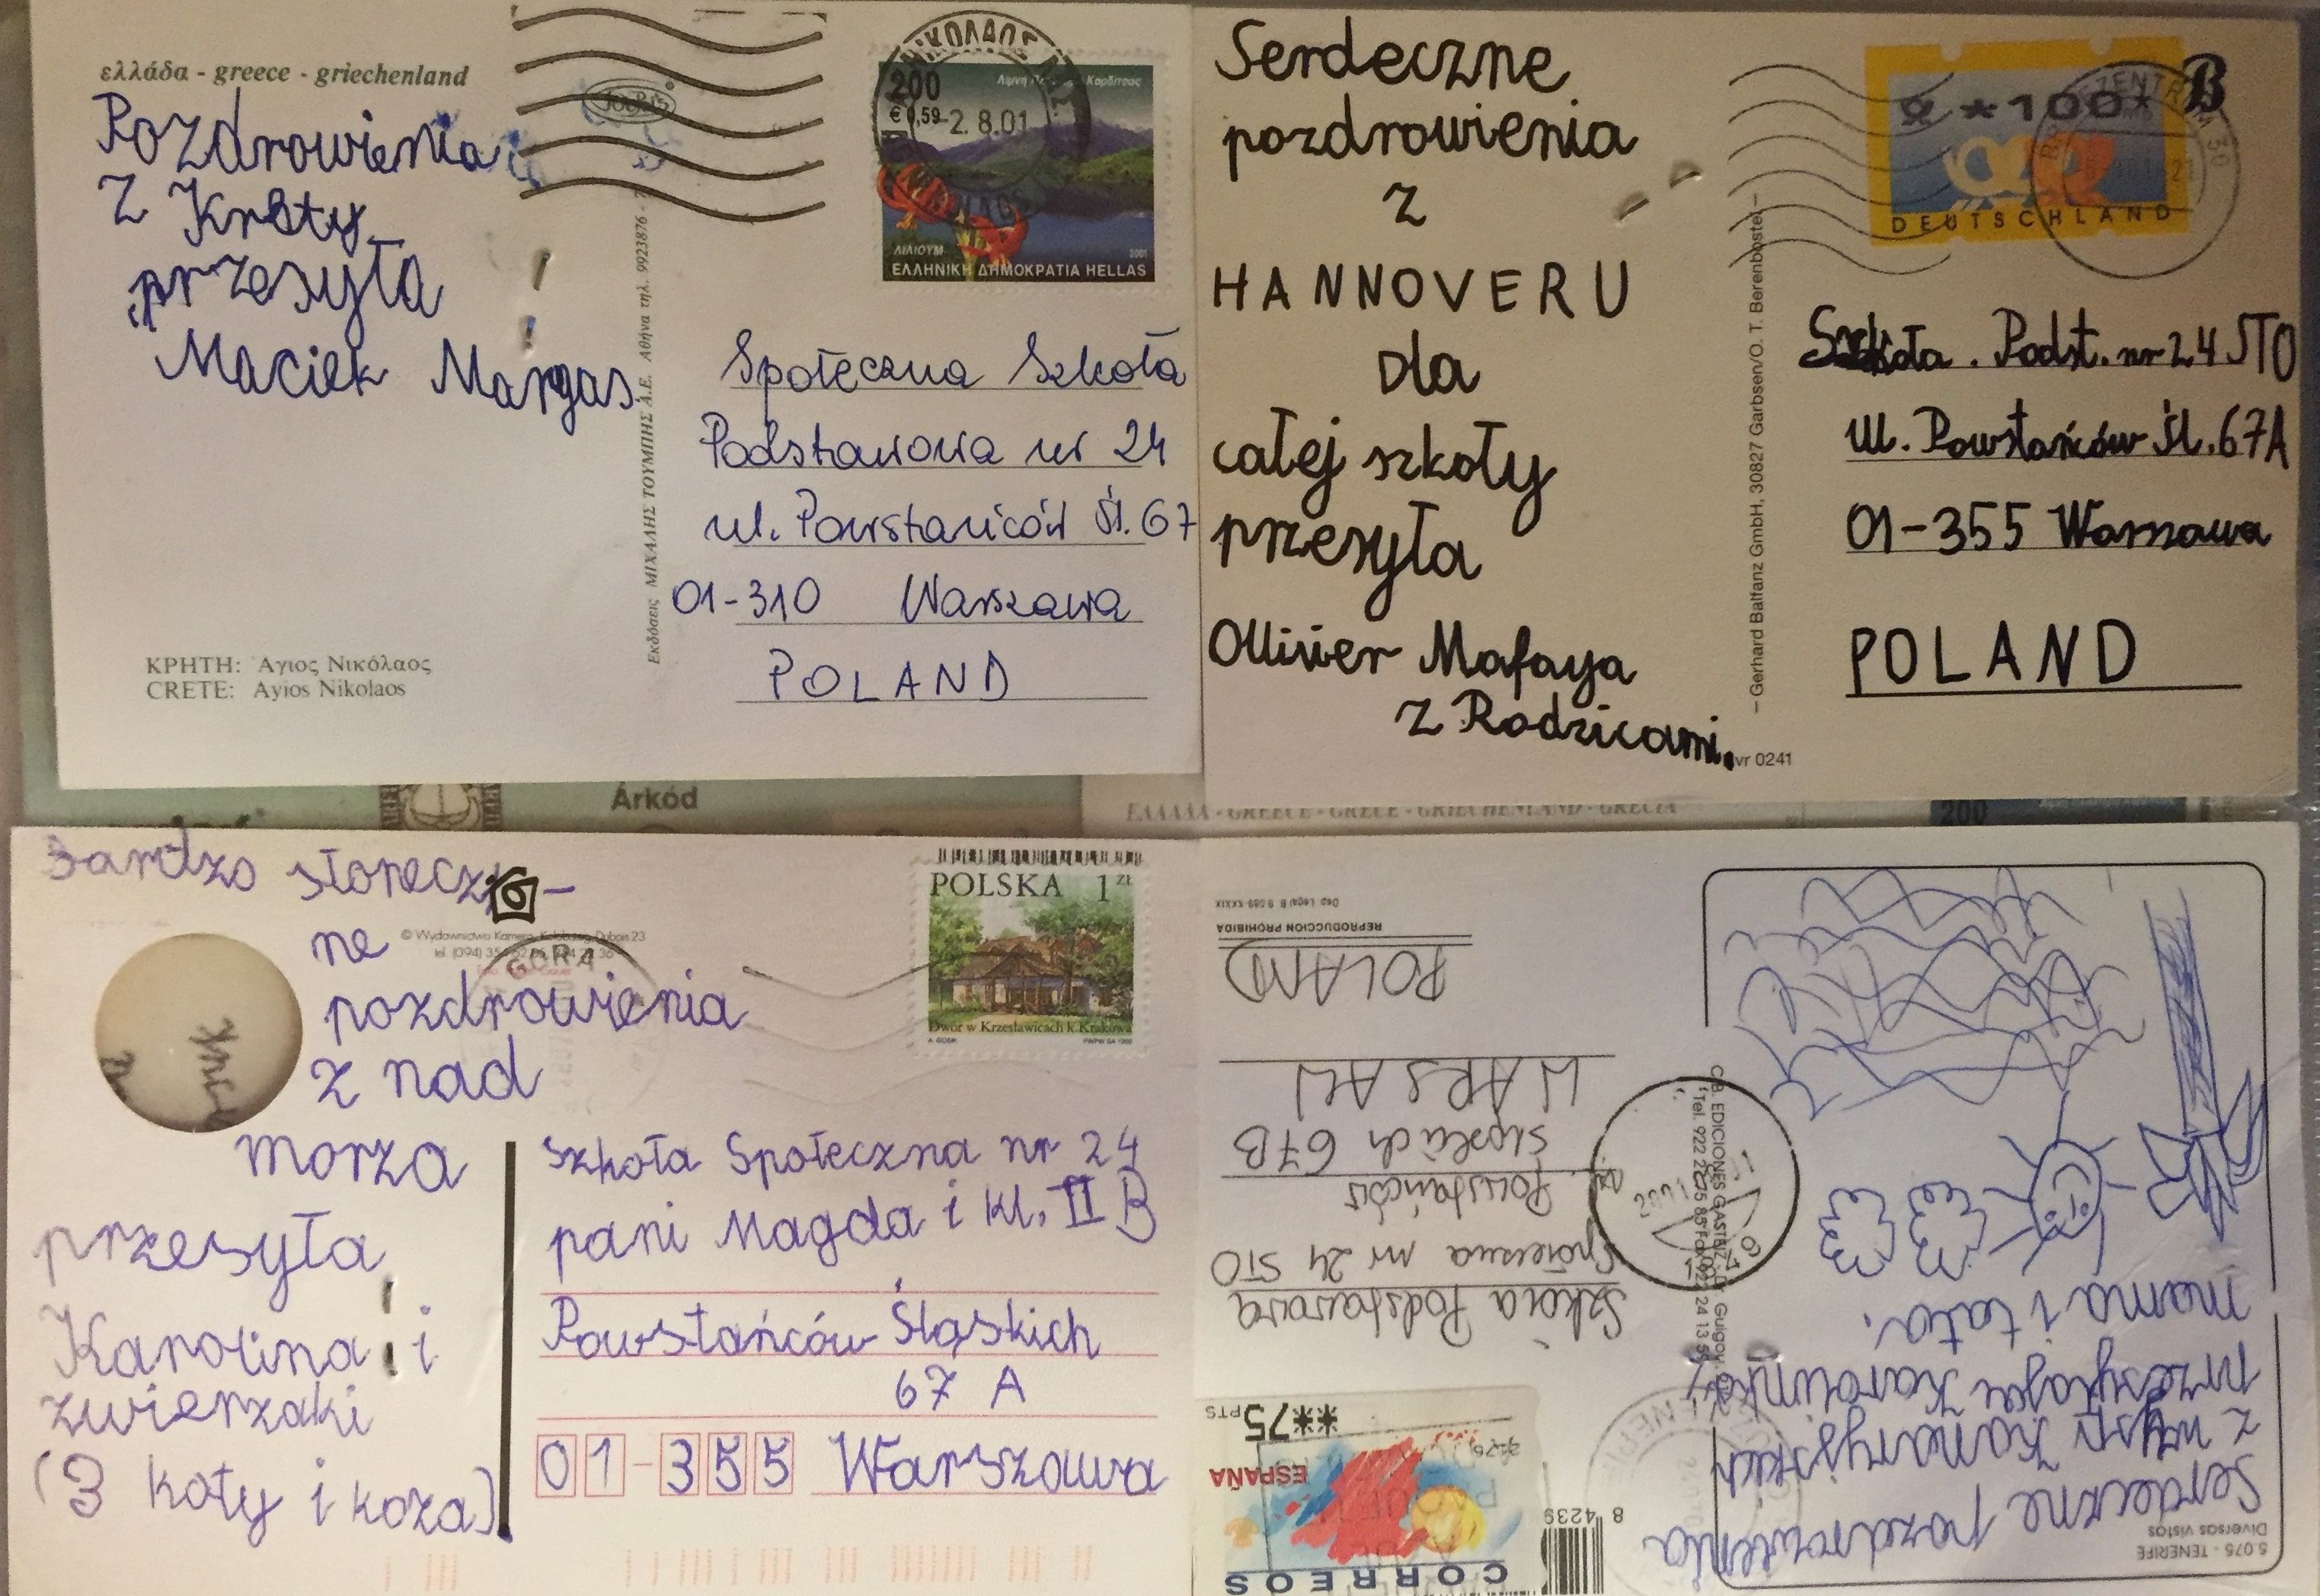 ελλάδα - greece - griechenland
Pozdrowienia
z Krety
przesyła
Maciek Margas
ΚΡΗΤΗ: Αγιος Νικόλαος
CRETE: Ayios Nikolaos
Εκδόσεις ΜΙΧΑΛΗΣ ΤΟΥΜΠΗΣ Α.Ε. Αθήνα τηλ. 9923876
200
€ 0,59
-2. 8.01
ΛΙΛΙΟΥΜ
2001
ΕΛΛΗΝΙΚΗ ΔΗΜΟΚΡΑΤΙΑ HELLAS
Społeczna Szkoła
Podstawowa nr 24
ul. Powstańców Śl. 67
01-310 Warszawa
POLAND
Serdeczne
pozdrowienia
z
HANNOVERU
dla
całej szkoły
przesyła
Ollivier Mafaya
z Rodzicami.
vr 0241
– Gerhard Balfanz GmbH, 30827 Garbsen/O. T. Berenbostel –
*100*
DEUTSCHLAND
B
Szkoła. Podst. nr 24 STO
ul. Powstańców Śl. 67A
01-355 Warszawa
POLAND
Árkód
ΕΛΛΑΔΑ - GREECE - GRECE - GRIECHENLAND - GRECIA
200
Bardzo słonecz-
ne
pozdrowienia
z nad
morza
przesyła
Karolina i
zwierzaki
(3 koty i koza)
© Wydawnictwo Kamera, Kołobrzeg, Dubois 23
GÓRA
POLSKA 1 ZŁ
Dwór w Krzesławicach k. Krakowa
Szkoła Społeczna nr 24
pani Magda i kl. II B
Powstańców Śląskich
67 A
01-355 Warszawa
5.075 - TENERIFE
Diversas vistas
Serdeczne pozdrowienia
z wysp Kanaryjskich
przesyłają Karolinka,
mama i tata.
CORREOS
ESPAÑA
**75 PTS
8 4239
Szkoła Podstawowa
Społeczna nr 24 STO
ul. Powstańców
Śląskich 67B
WARSAW
POLAND
REPRODUCCION PROHIBIDA
Dep. Legal B. 9.089-XXXIX